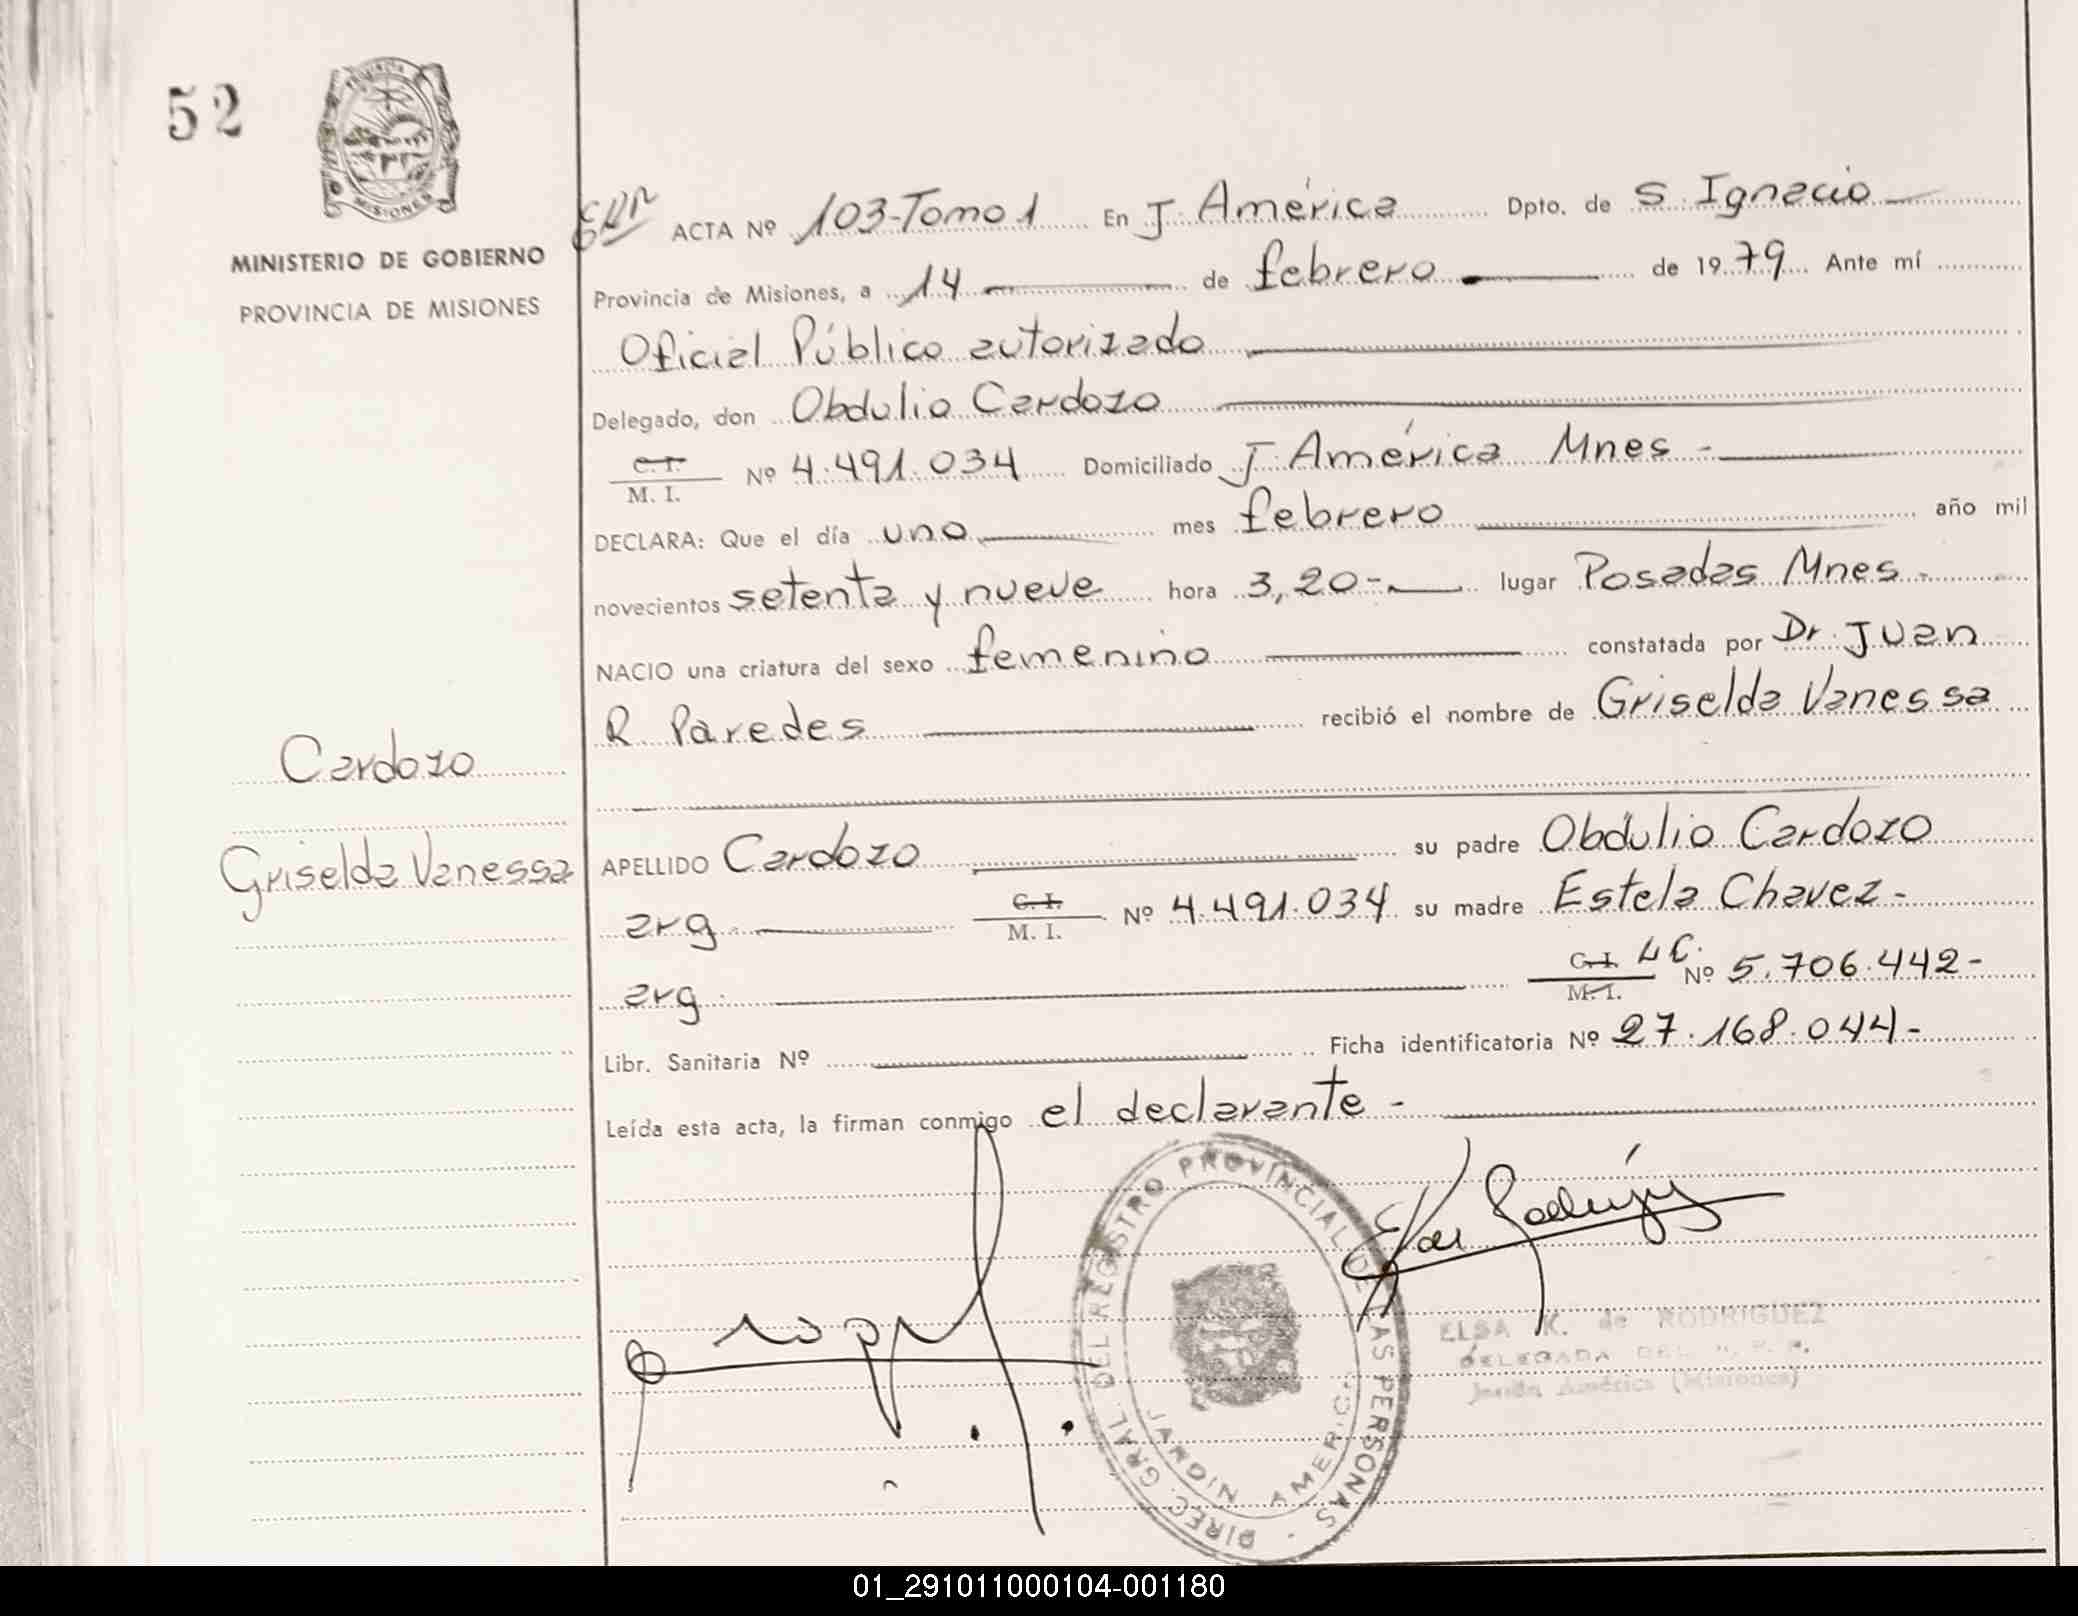 52
PROVINCIA
MISIONES
MINISTERIO DE GOBIERNO
PROVINCIA DE MISIONES
ACTA Nº 103-Tomo 1 En J. América Dpto. de S. Ignacio
Provincia de Misiones, a 14 de febrero de 1979 Ante mí
Oficial Público autorizado
Delegado, don Obdulio Cardozo
C. I.
M. I. Nº 4.491.034 Domiciliado J. América Mnes -
DECLARA: Que el día uno mes febrero año mil
novecientos setenta y nueve hora 3,20- lugar Posadas Mnes -
NACIO una criatura del sexo femenino constatada por Dr. Juan
R. Paredes recibió el nombre de Griselda Vanessa
Cardozo
Griselda Vanessa
APELLIDO Cardozo su padre Obdulio Cardozo
arg. C. I.
M. I. Nº 4.491.034 su madre Estela Chavez -
arg. C. I. L C.
M. I. Nº 5.706.442-
Libr. Sanitaria Nº Ficha identificatoria Nº 27.168.044-
Leída esta acta, la firman conmigo el declarante -
DIREC. GRAL. DEL REGISTRO PROVINCIAL DE LAS PERSONAS -
JARDIN AMERICA
ELSA K. de RODRIGUEZ
DELEGADA DEL R. P. P.
Jardín América (Misiones)
01_291011000104-001180